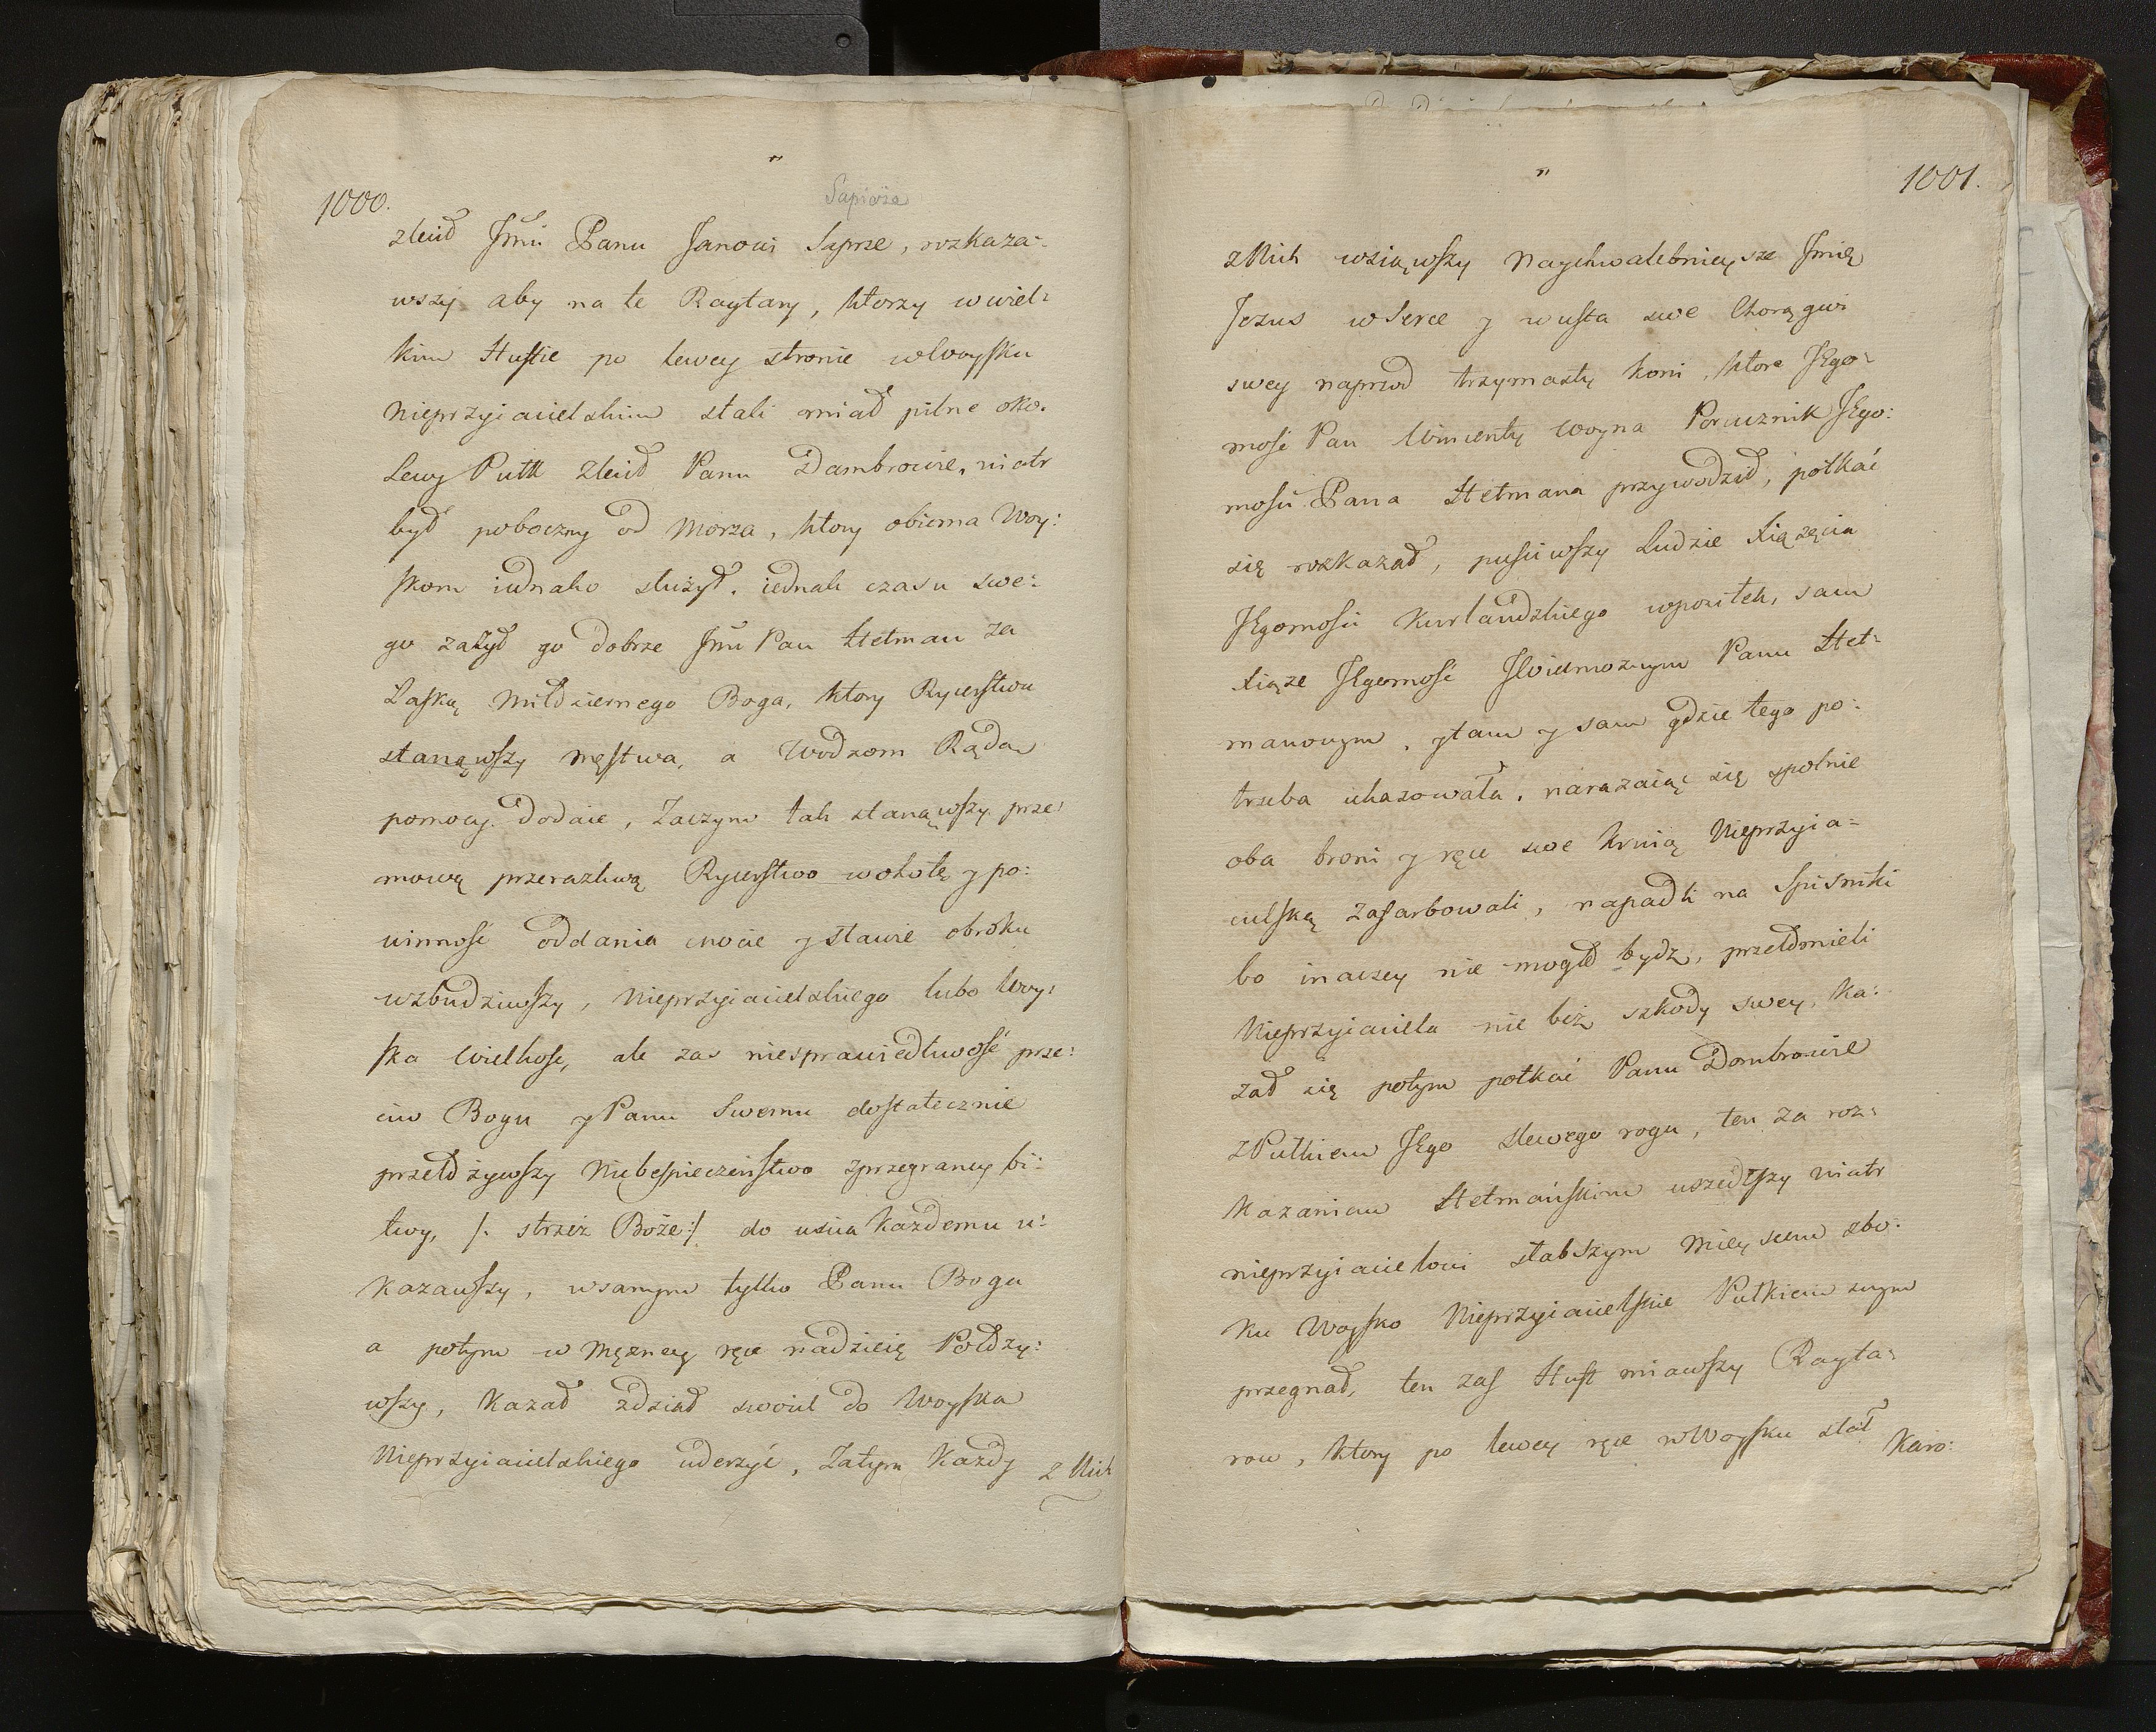 1000.
Sapieża
zlecił Jmu Panu Janowi Saprze, rozkaza-
wszy aby na te Raytary, ktorzy w wiel-
kim Huffie po lewey stronie w Woysku
Nieprzyiacielskim stali miał pilne oko.
Lewy Pułk zlecił Panu Dambrowie, wiatr
był poboczny od Morza, ktory obiema Woy:
skom iednako służył. iednak czasu swe-
go zażył go dobrze Jmć Pan Hetman za
Łaską Miłdziernego Boga, ktory Rycerstwu
stanąwszy męstwa, a Wodzom Rąda
pomocy dodaie, Zaczym tak stanąwszy prze
mową przeraźliwą Rycerstwo w ochotę y po:
winność oddania cnocie y sławie obroku
wzbudziwszy, Nieprzyiacielskiego lubo Woy:
ska Wielkość, ale zas niesprawiedliwość prze:
ciw Bogu y Panu Swemu dostatecznie
przełdżywszy Niebespieczeństwo zprzegraney bi:
twy, /: strzeż Boże :/ do uścia każdemu u:
kazawszy, w samym tylko Panu Bogu
a potym w Mężney ręce nadzieię Połdzy:
wszy, kazał zdział swoich do Woyska
Nieprzyiacielskiego uderzyć, Zatym Każdy
z Nich
1001.
z Nich wziąwszy Naychwalebnieysze Jmię
Jezus w Serce y w usta swe Chorągwi
swey naprzod trzymasty koni, ktore Jego-
mość Pan Wincenty Woyna Porucznik Jego:
mości Pana Hetmana przywodził, potkać
się rozkazał, puściwszy Ludzie Xiążęcia
Jegomości Kurlandzkiego w posiłek, sam
Xiąże Jegomość z Wielmożnym Panem Het-
manowym, y tam y sam gdzie tego po:
trzeba ukazowała, narażaiąc się spolnie
oba broni y ręce swe krwią Nieprzyia-
cielską zafarbowali, napadli na Spiśniki
bo inaczey nie mogło bydz, przełomieli
Nieprzyiaciela nie bez szkody swey, Ka:
zał się potym potkać Panu Dombrowie
z Pułkiem Jego z lewego rogu, ten za roz:
kazaniem Hetmańskim uszedłszy wiatr
nieprzyiacielowi słabszym mieyscem zbo:
ku Woysko Nieprzyiacielskie Pułkiem swym
przegnał, ten zaś Huff miawszy Rayta:
row, ktory po lewey ręce w Woysku stał
Karo: